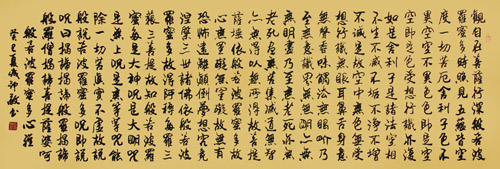 觀自在菩薩行深般若波
羅蜜多時照見五蘊皆空
度一切苦厄舍利子色不
異空空不異色色即是空
空即是色受想行識亦復
如是舍利子是諸法空相
不生不滅不垢不淨不增
不減是故空中無色無受
想行識無眼耳鼻舌身意
無色聲香味觸法無眼界乃
至無意識界無無明亦
無無明盡乃至無老死亦無
老死盡無苦集滅道無智
亦無得以無所得故菩提
薩埵依般若波羅蜜多故
心無罣礙無罣礙故無有
恐怖遠離顛倒夢想究竟
涅槃三世諸佛依般若波
羅蜜多故得阿耨多羅三
藐三菩提故知般若波羅
蜜多是大神咒是大明咒
是無上咒是無等等咒能
除一切苦真實不虛故說
般若波羅蜜多咒即說
咒曰揭諦揭諦波羅揭諦
波羅僧揭諦菩提薩婆呵
般若波羅蜜多心經
癸巳夏 許敏書